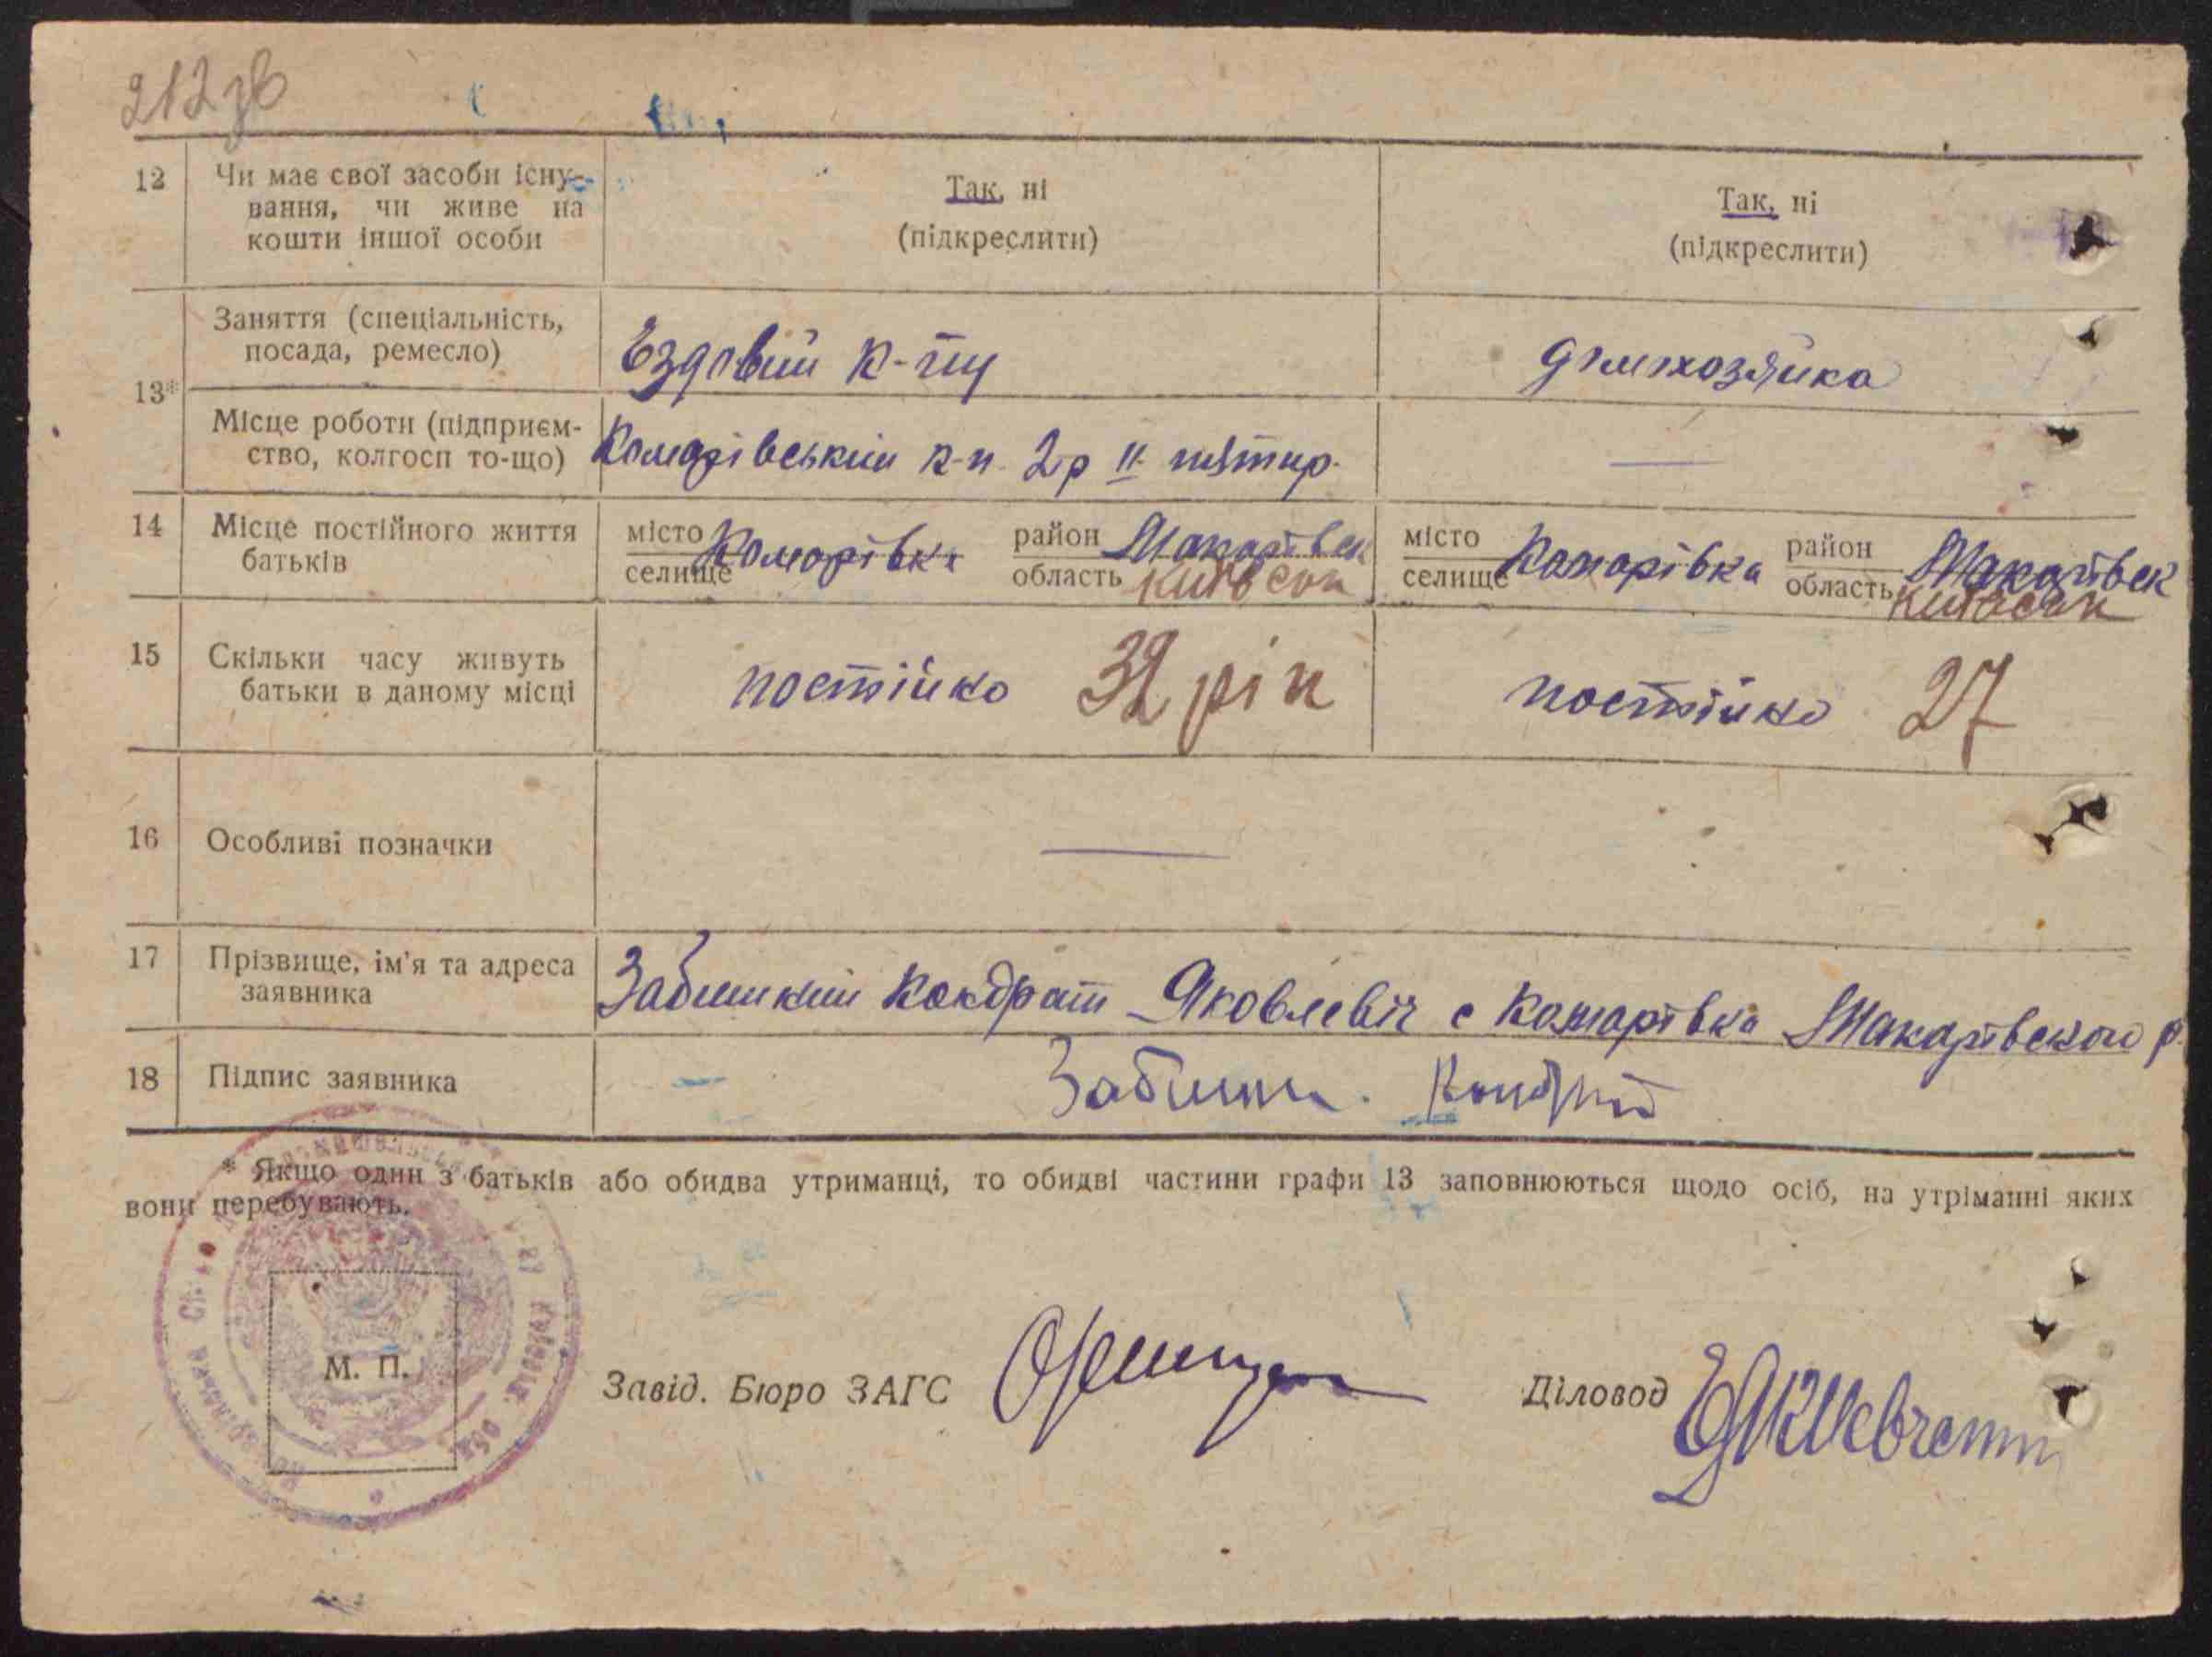 212 зв
12 Чи має свої засоби існу- Так, ні Так, ні
вання, чи живе на (підкреслити) (підкреслити)
кошти іншої особи
13* Заняття (спеціальність, Ездовий к-пу домохозяйка
посада, ремесло)
Місце роботи (підприєм- Комарівський к-п 2р II пятир. —
ство, колгосп то-що)
14 Місце постійного життя місто Комарівка район Макарівск місто Комарівка район Макарівск
батьків селище область Київськ селище область Київськ
15 Скільки часу живуть постійно 32 рік постійно 27
батьки в даному місці
16 Особливі позначки —
17 Прізвище, ім'я та адреса Забишний Кондрат Яковлевіч с Комарівка Макарівского р.
заявника
18 Підпис заявника
* Якщо один з батьків або обидва утриманці, то обидві частини графи 13 заповнюються щодо осіб, на утріманні яких
вони перебувають.
М. П.
Завід. Бюро ЗАГС Діловод